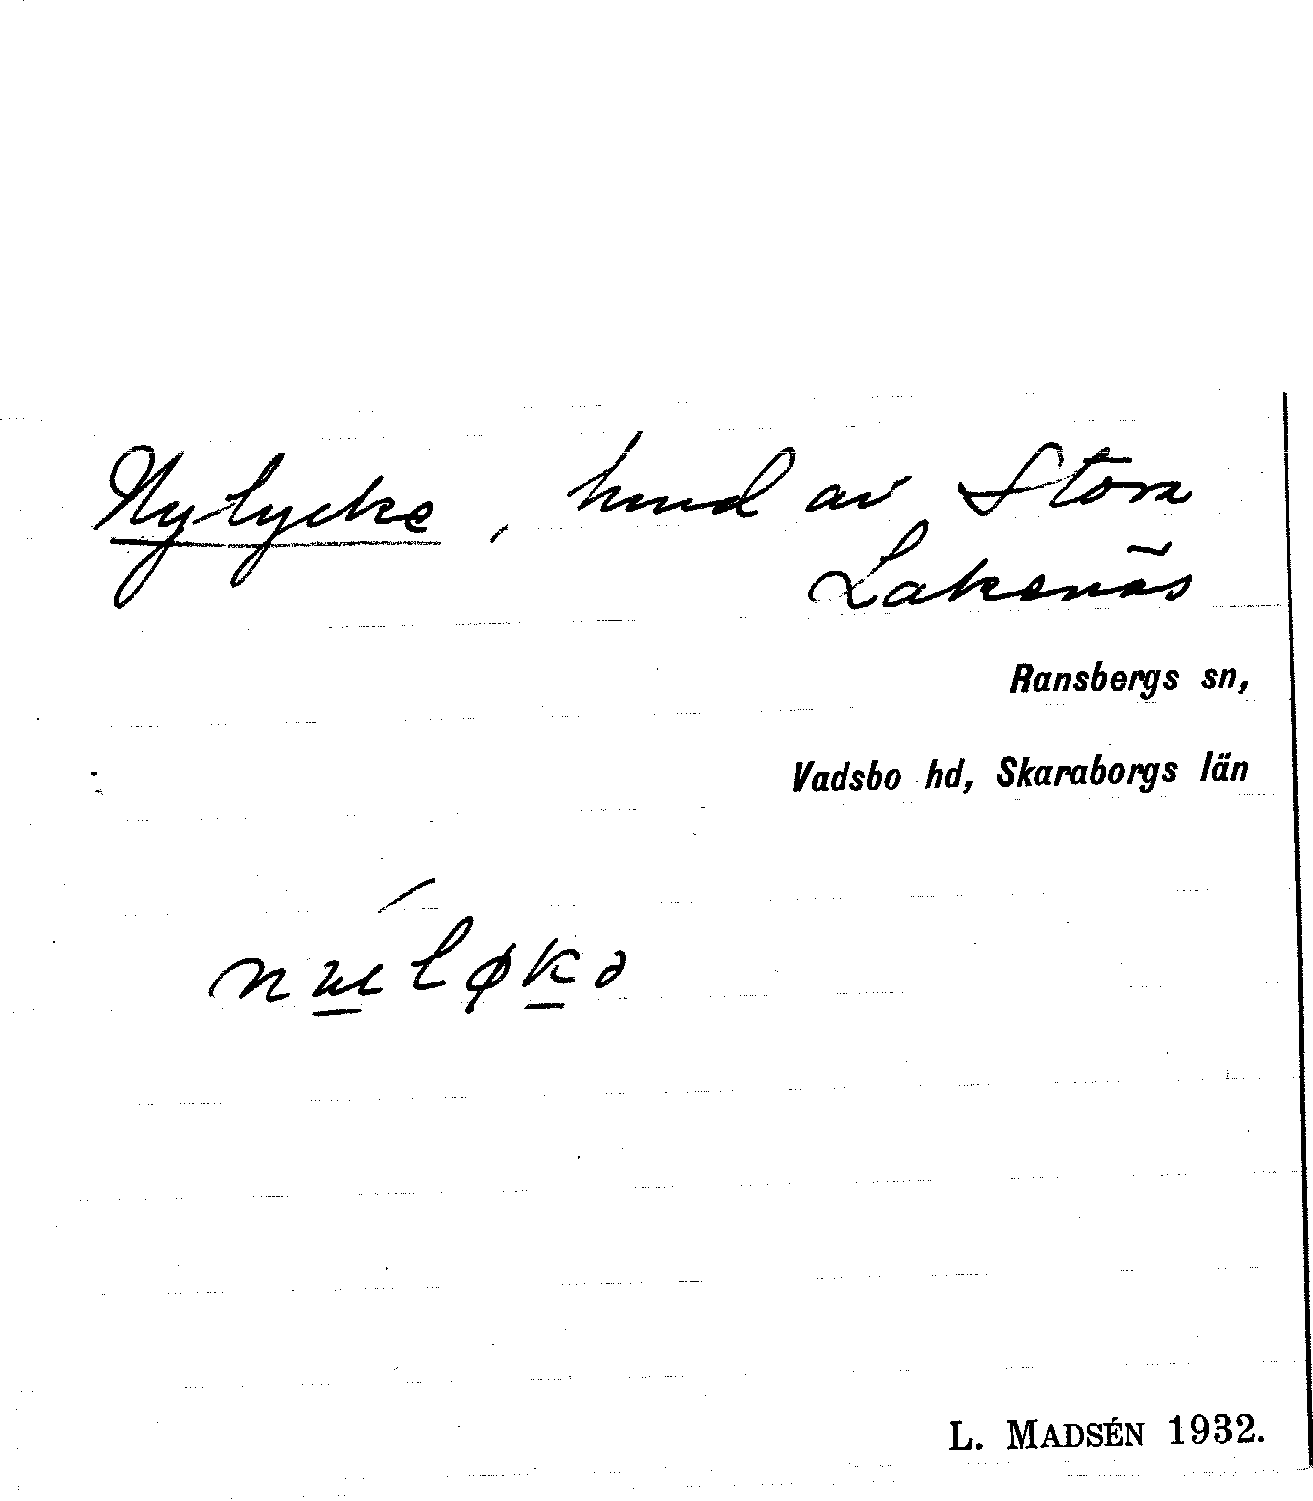 Nylycke, hmd av Stora
Lakenäs
Ransbergs sn,
Vadsbo hd, Skaraborgs län
L. MADSÉN 1932.